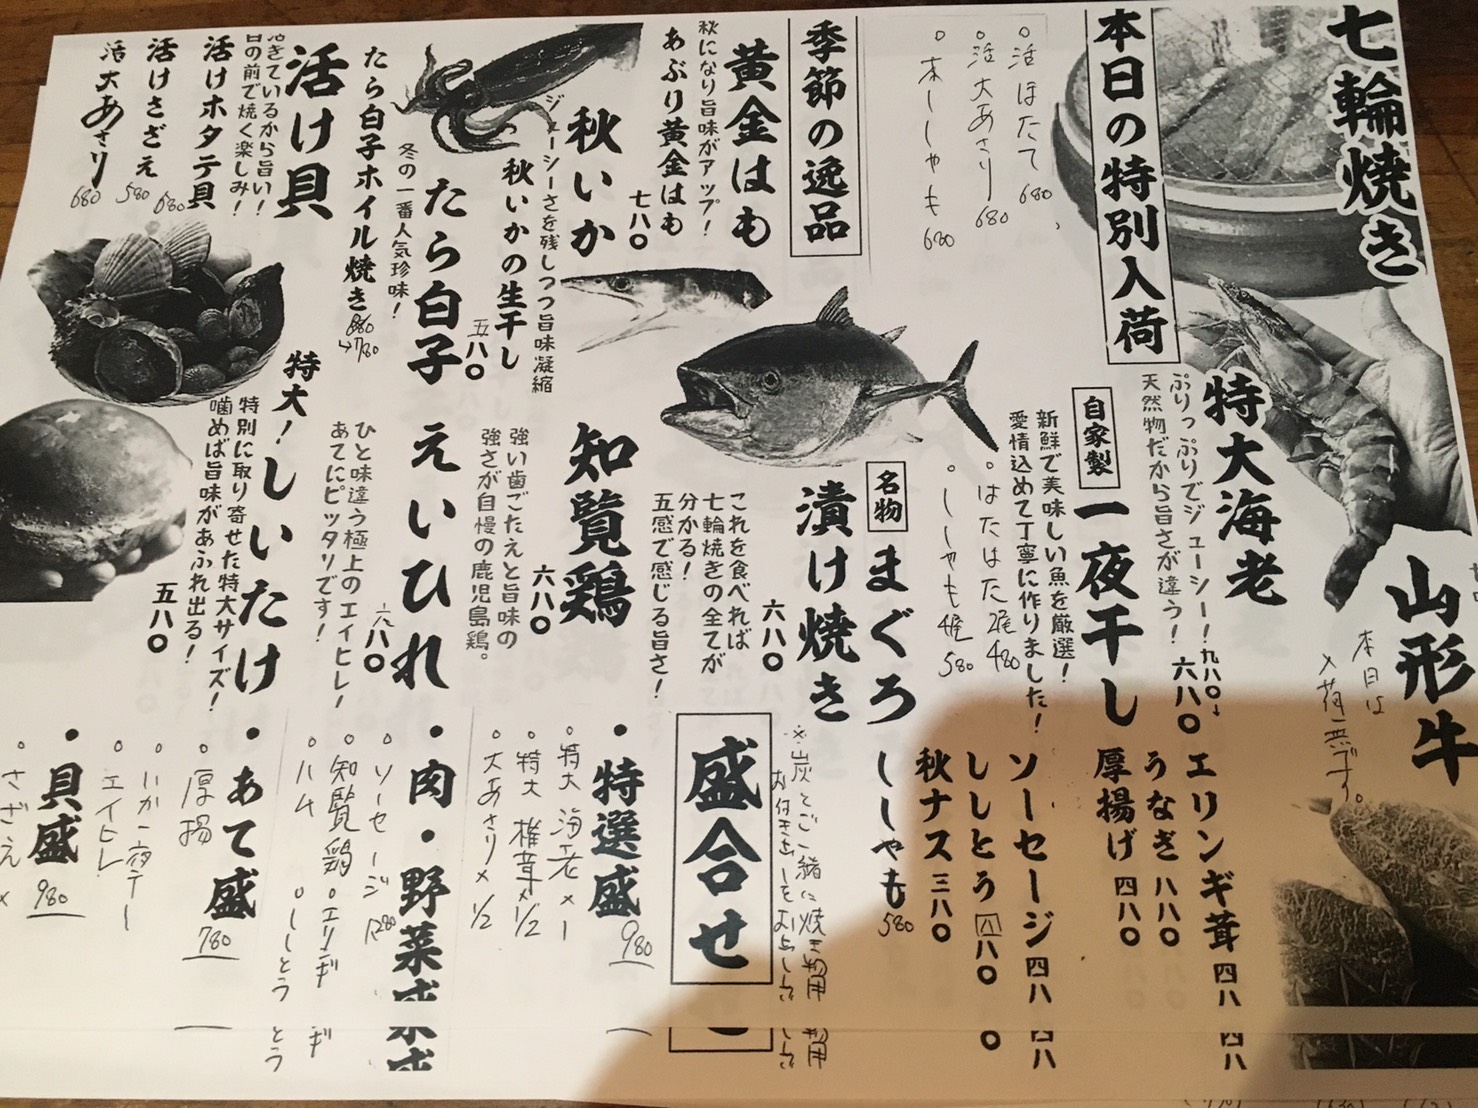 七輪焼き
本日の特別入荷
。活ほたて 680
。活大あさり 680
。本ししゃも 680
季節の逸品
黄金はも
秋になり旨味がアップ！
あぶり黄金はも
七八〇
秋いか
ジューシーさを残しつつ旨味凝縮
秋いかの生干し
五八〇
たら白子
冬の一番人気珍味！
たら白子ホイル焼き
880→780
活け貝
活きているから旨い！
目の前で焼く楽しみ！
活けホタテ貝 680
活けさざえ 580
活大あさり 680
山形牛
本日は
入荷無です。
特大海老
ぷりっぷりでジューシー！
天然物だから旨さが違う！
九八〇→
六八〇
自家製
一夜干し
新鮮で美味しい魚を厳選！
愛情込めて丁寧に作りました！
。はたはた 2尾 480
。ししゃも 4尾 580
名物
まぐろ
漬け焼き
六八〇
これを食べれば
七輪焼きの全てが
分かる！
五感で感じる旨さ！
知覧鶏
六八〇
強い歯ごたえと旨味の
強さが自慢の鹿児島鶏。
えいひれ
六八〇
ひと味違う極上のエイヒレ！
あてにピッタリです！
特大！しいたけ
特別に取り寄せた特大サイズ！
噛めば旨味があふれ出る！
五八〇
エリンギ茸 四八
うなぎ 八八〇
厚揚げ 四八〇
ソーセージ 四八
ししとう 四八〇
秋ナス 三八〇
ししゃも 580
※炭とご一緒に焼き物用
盛合せ
・特選盛 980
。特大海老×1
。特大椎茸×1/2
。大あさり×1/2
・肉・野菜盛
1280
。ソーセージ
。知覧鶏 。エリンギ
。ハム 。ししとう
・あて盛 780
。厚揚
。いか一夜干し
。エイヒレ
・貝盛 980
。さざえ×